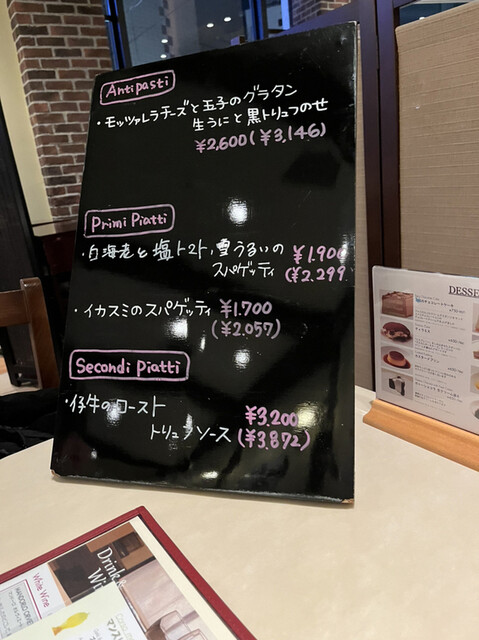 Antipasti
・モッツァレラチーズと玉子のグラタン
生うにと黒トリュフのせ
¥2,600(¥3,146)
Primi Piatti
・白海老と塩トマト、雪うるいの
スパゲッティ
¥1,900
(¥2,299
・イカスミのスパゲッティ
¥1,700
(¥2,057)
Secondi Piatti
・仔牛のロースト
トリュフソース
¥3,200
(¥3,872)
DESSE
Drink
Wi
White Wine